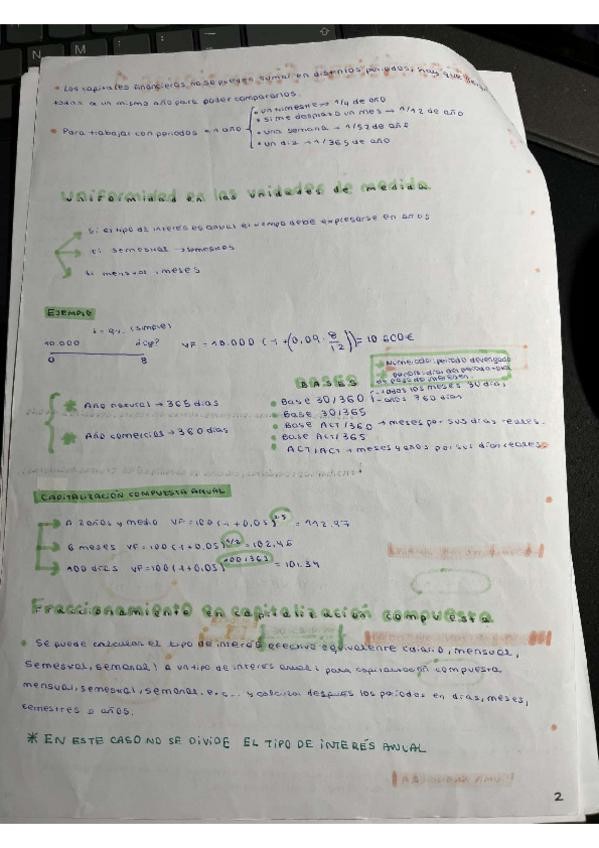 • Los capitales financieros no se pueden sumar en distintos periodos, hay que
todos a un mismo año para poder compararlos.
• Para trabajar con periodos < 1 año
• un trimestre → 1/4 de año
• si me desplazo un mes → 1/12 de año
• una semana → 1/52 de año
• un día → 1/365 de año
Uniformidad en las unidades de medida
Si el tipo de interés es anual el tiempo debe expresarse en años
semestral → semestres
mensual, meses
EJEMPLO
i = 9% (simple)
10.000 ¿cf?
0 8
VF = 10.000 (1+(0,09 · 8/12)) = 10.600€
BASES
* Numerador: periodo devengado
* Año natural → 365 días
* Año comercial → 360 días
• Base 30/360
- todos los meses 30 días
- años 360 días
• Base 30/365
• Base ACT/360 → meses por sus días reales.
• Base ACT/365
• ACT/ACT → meses y años por sus días reales
CAPITALIZACIÓN COMPUESTA ANUAL
→ A 2 años y medio VF = 100 (1+0,05)^2.5 = 112.97
→ 6 meses VF = 100 (1+0,05)^1/2 = 102.46
→ 100 días VF = 100 (1+0,05)^100/365 = 101.34
Fraccionamiento en capitalización compuesta
• Se puede calcular el tipo de interés efectivo equivalente (diario, mensual,
semestral, semanal) a un tipo de interés anual para capitalización compuesta
mensual, semestral, semanal. etc... y calcular después los periodos en días, meses,
semestres o años.
* EN ESTE CASO NO SE DIVIDE EL TIPO DE INTERÉS ANUAL
2